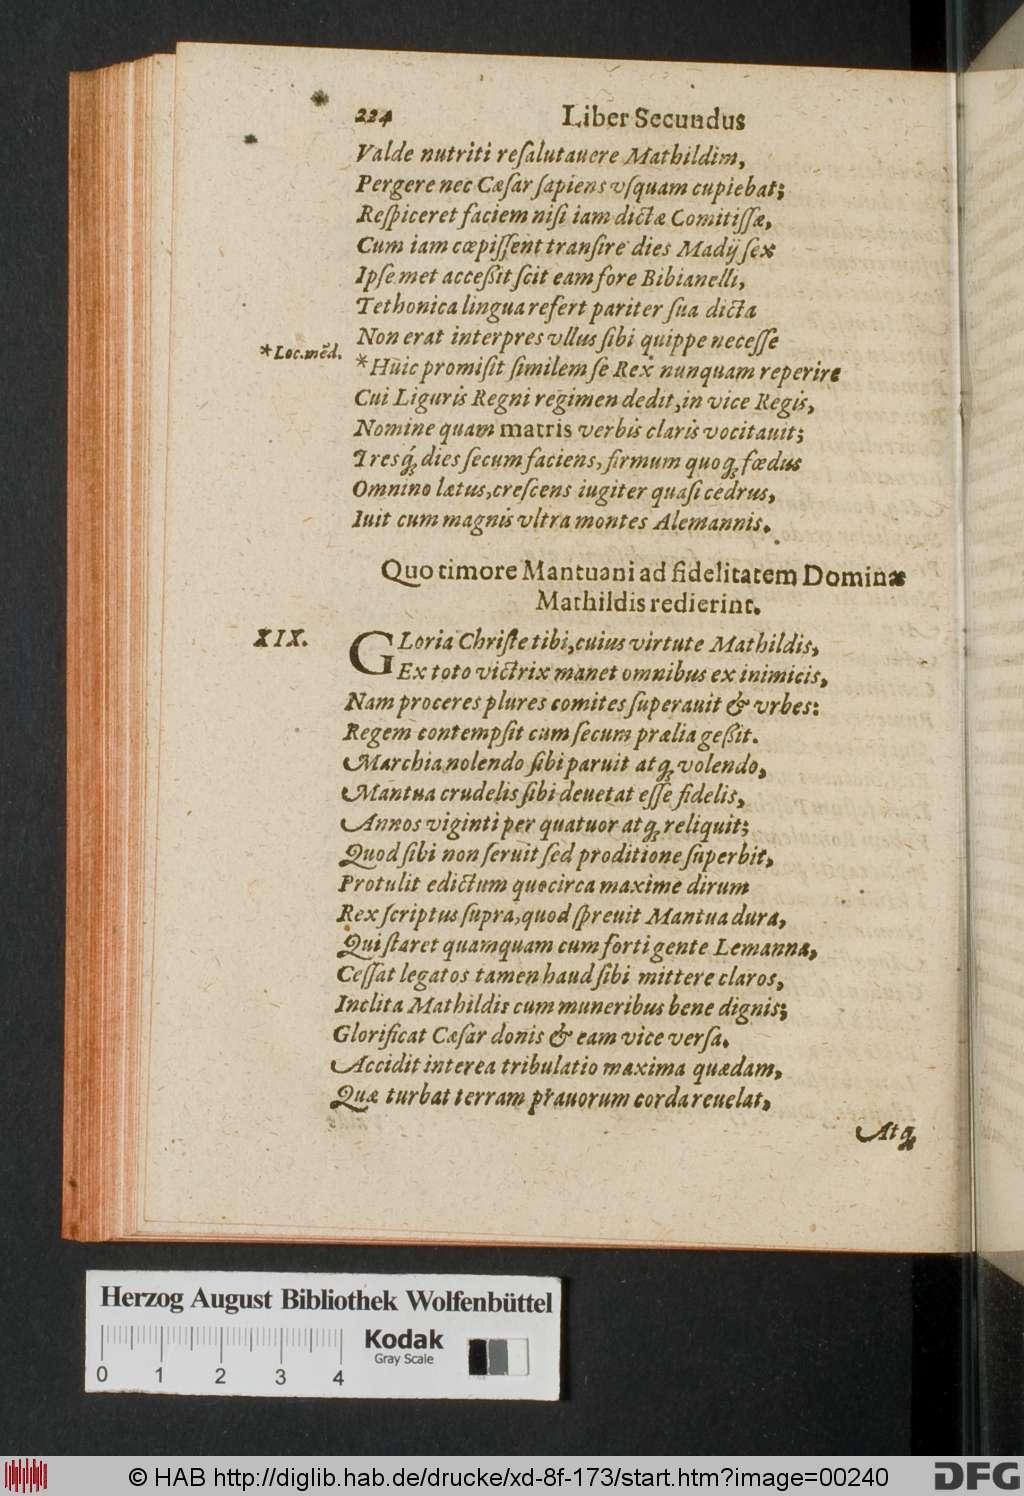 224 Liber Secundus
Valde nutriti reſalutauere Mathildim,
Pergere nec Cæſar ſapiens vſquam cupiebat;
Reſpiceret faciem niſi iam dictæ Comitiſſæ,
Cum iam cœpiſſent tranſire dies Madij ſex
Ipſemet acceßit ſcit eam fore Bibianelli,
Tethonica lingua refert pariter ſua dicta
Non erat interpres vllus ſibi quippe neceſſe
*Loc.mēd.
*Huic promiſit ſimilem ſe Rex nunquam reperire
Cui Liguris Regni regimen dedit, in vice Regis,
Nomine quam matris verbis claris vocitauit;
Tresq́; dies ſecum faciens, firmum quoq; fœdus
Omnino lætus, creſcens iugiter quaſi cedrus,
Iuit cum magnis vltra montes Alemannis.
Quo timore Mantuani ad fidelitatem Dominæ
Mathildis redierint.
XIX. GLoria Chriſte tibi, cuius virtute Mathildis,
Ex toto victrix manet omnibus ex inimicis,
Nam proceres plures comites ſuperauit & vrbes:
Regem contempſit cum ſecum prælia geßit.
Marchia nolendo ſibi paruit atq; volendo,
Mantua crudelis ſibi deuetat eſſe fidelis,
Annos viginti per quatuor atq; reliquit;
Quod ſibi non ſeruit ſed proditione ſuperbit,
Protulit edictum quocirca maxime dirum
Rex ſcriptus ſupra, quod ſpreuit Mantua dura,
Qui ſtaret quamquam cum forti gente Lemanna,
Ceſſat legatos tamen haud ſibi mittere claros,
Inclita Mathildis cum muneribus bene dignis;
Glorificat Cæſar donis & eam vice verſa.
Accidit interea tribulatio maxima quædam,
Quæ turbat terram prauorum corda reuelat,
Atq;
Herzog August Bibliothek Wolfenbüttel
Kodak
Gray Scale
0 1 2 3 4
© HAB http://diglib.hab.de/drucke/xd-8f-173/start.htm?image=00240
DFG